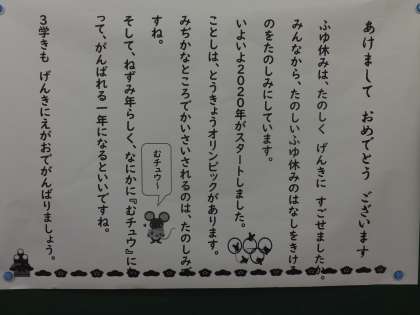 あけまして おめでとう ございます
ふゆ休みは、たのしく げんきに すごせましたか。
みんなから、たのしいふゆ休みのはなしをきける
のをたのしみにしています。
いよいよ2020年がスタートしました。
ことしは、とうきょうオリンピックがあります。
みぢかなところでかいさいされるのは、たのしみで
すね。
むチュウ～
そして、ねずみ年らしく、なにかに『むチュウ』にな
って、がんばれる一年になるといいですね。
3学きも げんきにえがおでがんばりましょう。